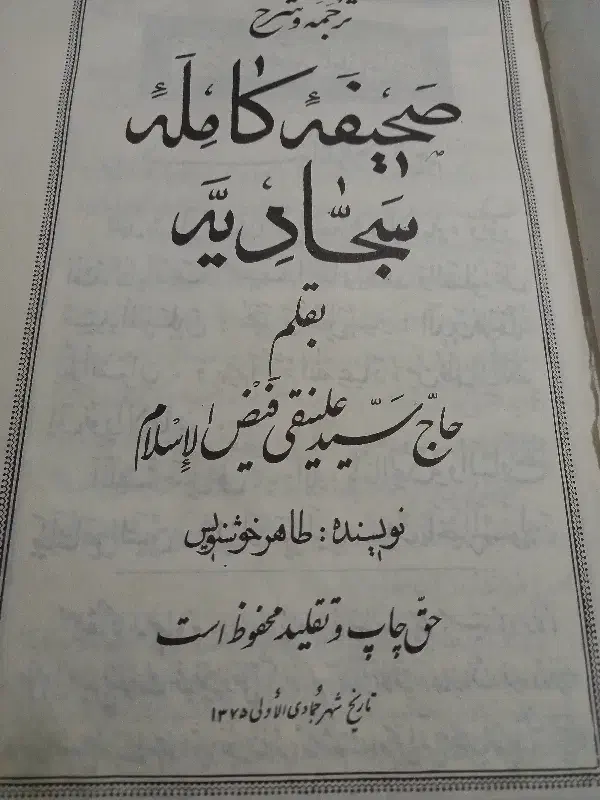 ترجمه و شرح
صَحیفَهٔ کامِلَهٔ
سَجّادِیَّه
بقلم
حاجّ سیّد علینقی فیض الإسلام
نویسنده: طاهر خوشنویس
حقّ چاپ و تقلید محفوظ است
تاریخ شهر جُمادی الأولی ۱۳۷۵